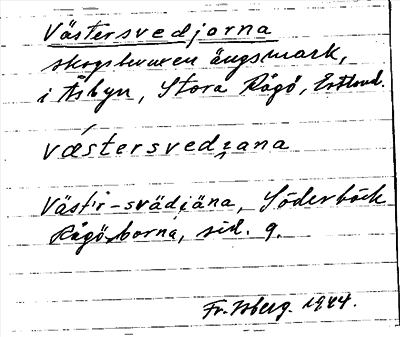 Västersvedjorna
skogbevuxen ängsmark,
i Åsbyn, Stora Rågö, Estland.
västersvedjana
Väst'r-svädjäna, Söderbäck
Rågöborna, sid. 9.
Fr. Isberg. 1944.